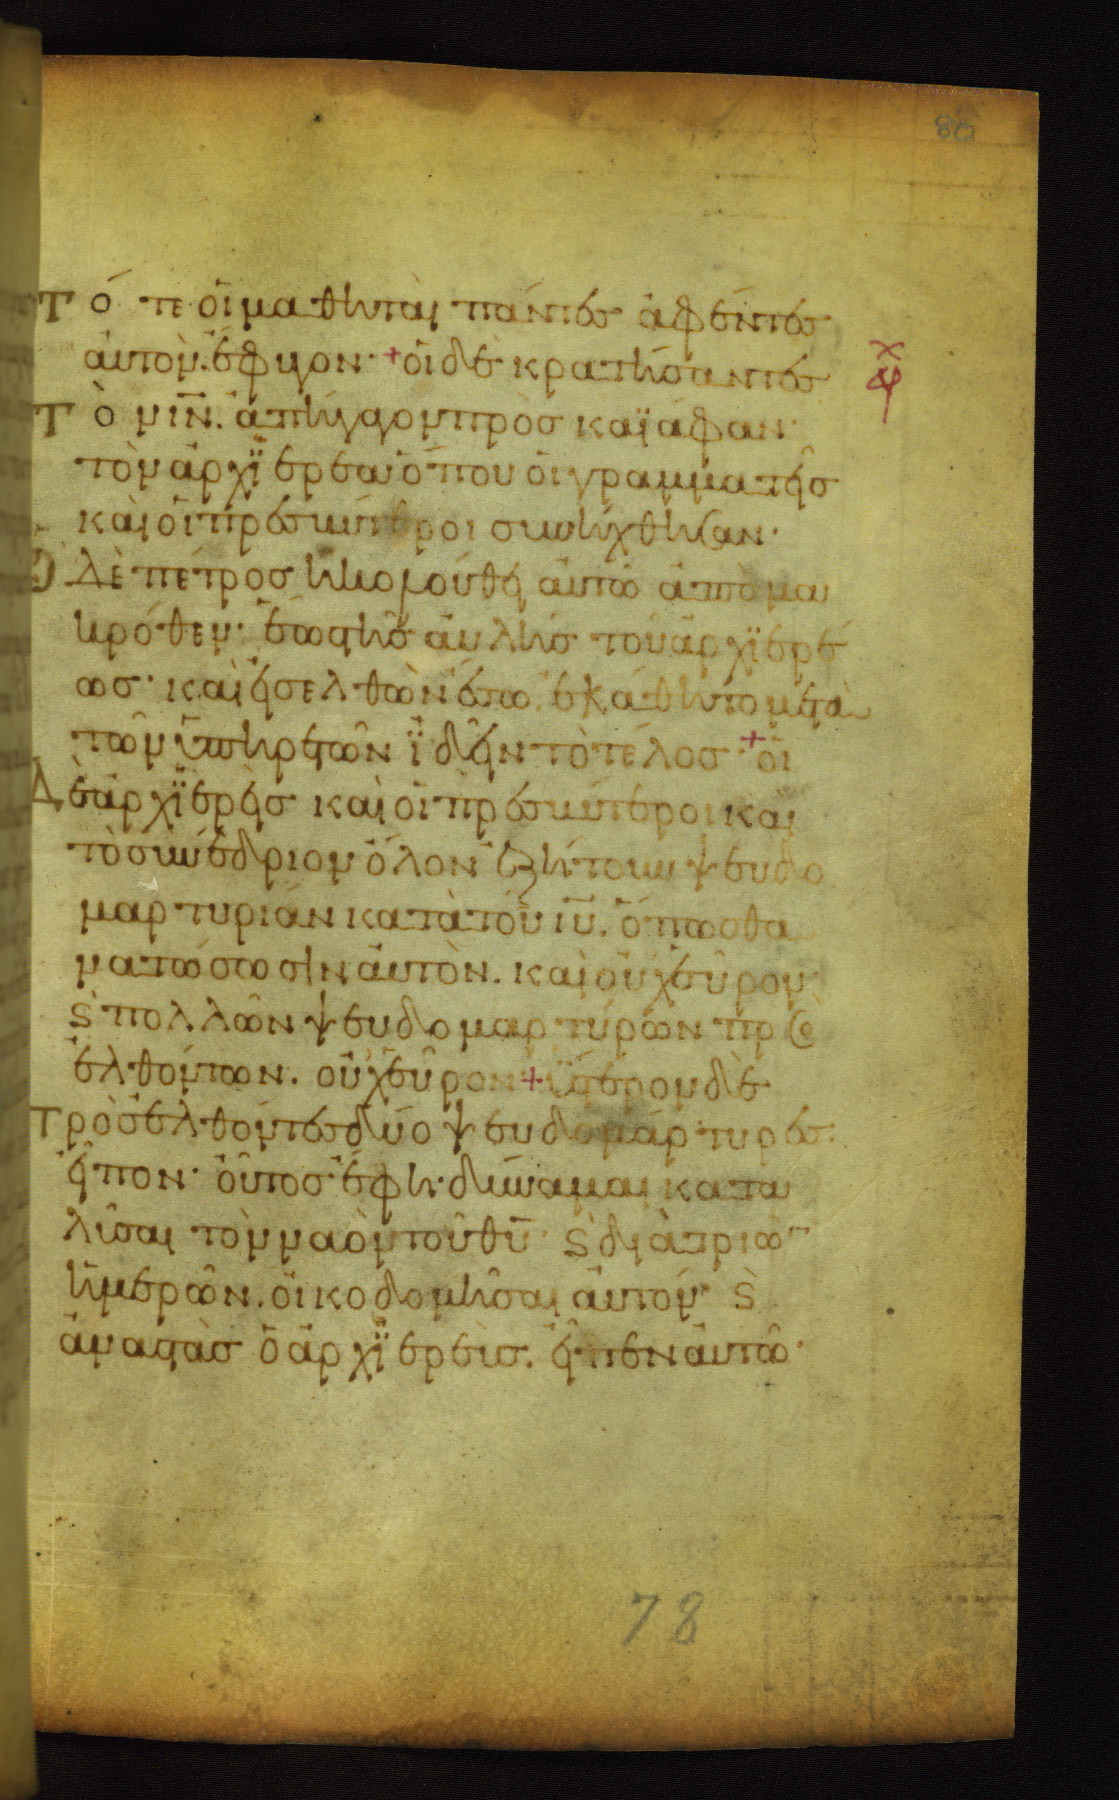 80
Τότε οἱ μαθηταὶ πάντες ἀφέντες
αὐτὸν. ἔφυγον· + οἱ δὲ κρατήσαντες
Τὸν ιν̅. ἀπήγαγον πρὸς καϊάφαν·
τὸν ἀρχϊερέα· ὅπου οἱ γραμματεῖς
καὶ οἱ πρεσβύτεροι συνήχθησαν·
Ὁ δὲ πέτρος ἠκολούθει αὐτῶ ἀπὸ μα
κρόθεν· ἕως τῆς αὐλῆς τοῦ ἀρχϊερέ
ως· καὶ εἰσελθὼν ἔσω. ἐκάθητο μετὰ
τῶν ὑπηρετῶν ἰδεῖν τὸ τέλος· + οἱ
Δὲ ἀρχϊερεῖς καὶ οἱ πρεσβύτεροι καὶ
τὸ συνέδριον ὅλον ἐζήτουν ψευδο
μαρτυρίαν κατὰ τοῦ ιυ̅. ὅπως θα
νατώσωσιν αὐτὸν. καὶ οὐχ εὗρον·
ϛ̀ πολλῶν ψευδομαρτύρων προσ
ελθόντων. οὐχ εὗρον + ὕστερον δὲ
Προσελθόντες δύο ψευδομάρτυρες·
εἶπον· οὗτος ἔφη· δύναμαι κατα
λῦσαι τὸν ναὸν τοῦ θυ̅ ϛ̀ διὰ τριῶν
ἡμερῶν. οἰκοδομῆσαι αὐτόν· ϛ̀
ἀναστὰς ὁ ἀρχϊερεὺς. εἶπεν αὐτῶ·
78